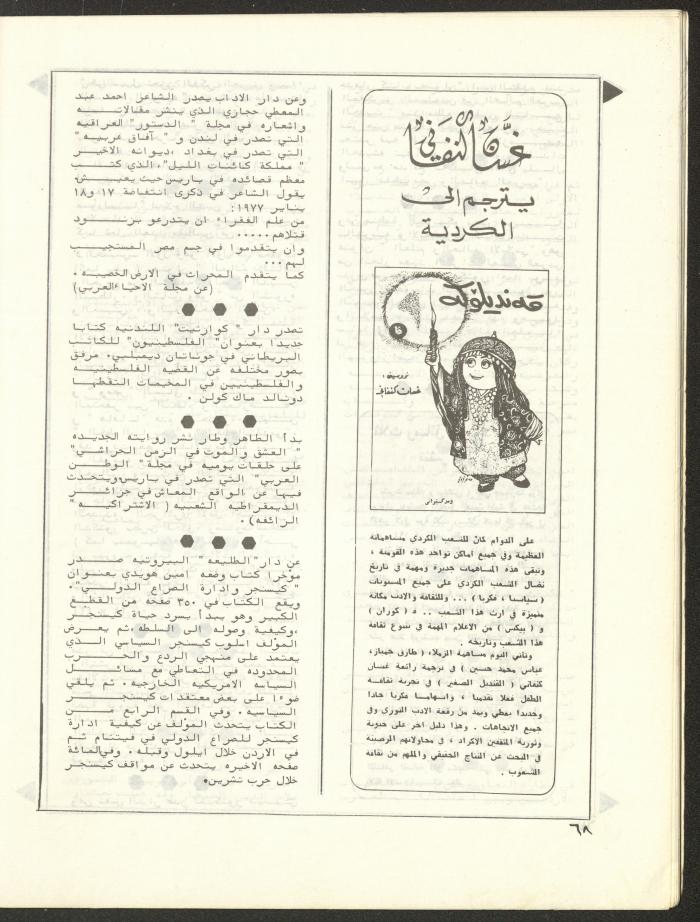 غسان كنفاني
يترجم الى
الكردية
قه نديلوكه
نووسينى :
غسان كنفاني
وه ركيرانى
على الدوام كان للشعب الكردي مساهماته
العظيمة وفي جميع اماكن تواجد هذه القومية ،
وتبقى هذه المساهمات جديرة ومهمة في تاريخ
نضال الشعب الكردي على جميع المستويات
( سياسيا ، فكريا ) ... وللثقافة والادب مكانة
متميزة في ارث هذا الشعب .. د ( كوران )
و ( بيكس ) من الاعلام المهمة في ينبوع ثقافة
هذا الشعب وتاريخه .
وتأتي اليوم مساهمة الزملاء ( طارق جمباز،
عباس محمد حسين ) في ترجمة رائعة غسان
كنفاني ( القنديل الصغير ) في تجربة ثقافة
الطفل فعلا تقدميا ، واسهاما فكريا جادا
وجديدا يعطي ويمد من رقعة الادب الثوري وفي
جميع الاتجاهات . وهذا دليل اخر على حيوية
وثورية المثقفين الاكراد ، في محاولاتهم الرصينة
في البحث عن النتاج الحقيقي والملهم من ثقافة
الشعوب .
وعن دار الاداب يصدر الشاعر احمد عبد
المعطي حجازي الذي ينشر مقالاته
واشعاره في مجلة " الدستور" العراقيه
التي تصدر في لندن و " آفاق عربيه "
التي تصدر في بغداد ،ديوانه الاخير
" مملكة كائنات الليل"، الذي كتب
معظم قصائده في باريس حيث يعيش.
يقول الشاعر في ذكرى انتفاضة ١٧ و١٨
يناير ١٩٧٧:
من علم الفقراء ان يتدرعو برنود
قتلاهم .....
وان يتقدموا في جسم مصر المستجيب
لهم ...
كما يتقدم المحراث في الارض الخصيبه .
(عن مجلة الاحياء العربي)
تصدر دار " كوارتيت" اللندنيه كتابا
جديدا بعنوان" الفلسطينيون" للكاتب
البريطاني في جوناتان ديمبلبي. مرفق
بصور مختلفه عن القضيه الفلسطينيه
والفلسطينيين في المخيمات التقطها
دونالد ماك كولن .
بدأ الطاهر وطار نشر روايته الجديده
" العشق والموت في الزمن الحراشي"
على حلقات يوميه في مجلة " الوطن
العربي" التي تصدر في باريس ويتحدث
فيها عن الواقع المعاش في جزائر
الديمقراطيه الشعبيه ( الاشتراكيه "
الرائعه) .
عن دار" الطليعه" البيروتيه صدر
مؤخرا كتاب وضعه امين هويدي بعنوان
" كيسنجر وادارة الصراع الدولي".
ويقع الكتاب في ٣٥٠ صفحه من القطع
الكبير وهو يبدأ بسرد حياة كيسنجر
،وكيفية وصوله الى السلطه ،ثم يعرض
المؤلف اسلوب كيسنجر السياسي الذي
يعتمد على منهجي الردع والحرب
المحدوده في التعاطي مع مسائل
السياسه الامريكيه الخارجيه. ثم يلقي
ضوءا على بعض معتقدات كيسنجر
السياسيه . وفي القسم الرابع من
الكتاب يتحدث المؤلف عن كيفية ادارة
كيسنجر للصراع الدولي في فيتنام ثم
في الاردن خلال ايلول وقبله . وفي المائة
صفحه الاخيره يتحدث عن مواقف كيسنجر
خلال حرب تشرين .
٦٨